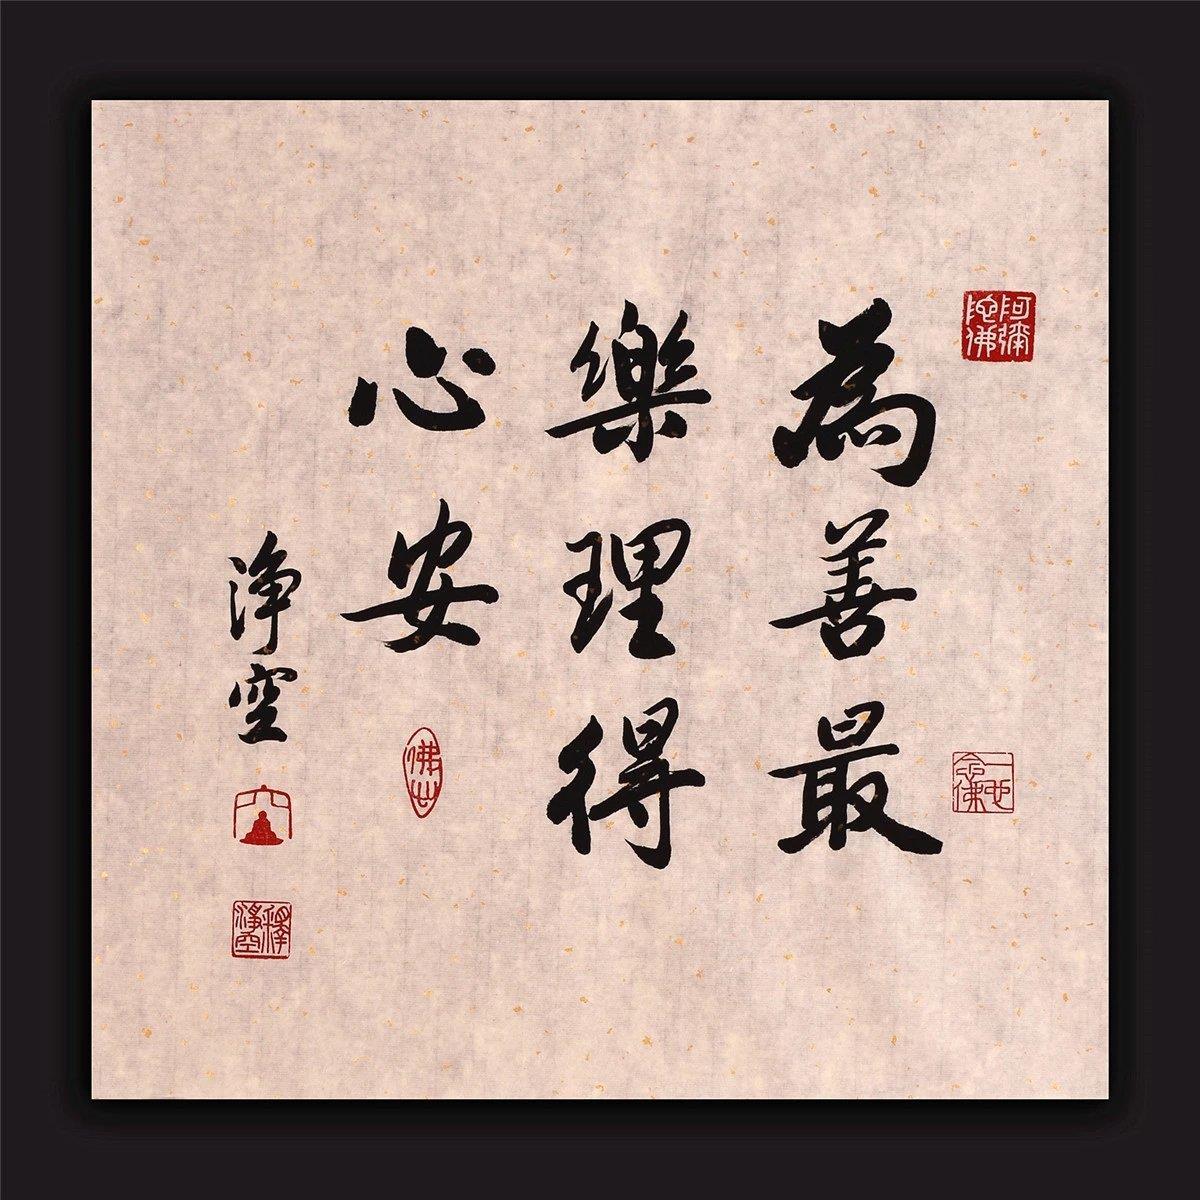 阿彌陀佛
為善最
樂理得
心安
淨空
一心念佛
佛心
釋淨空